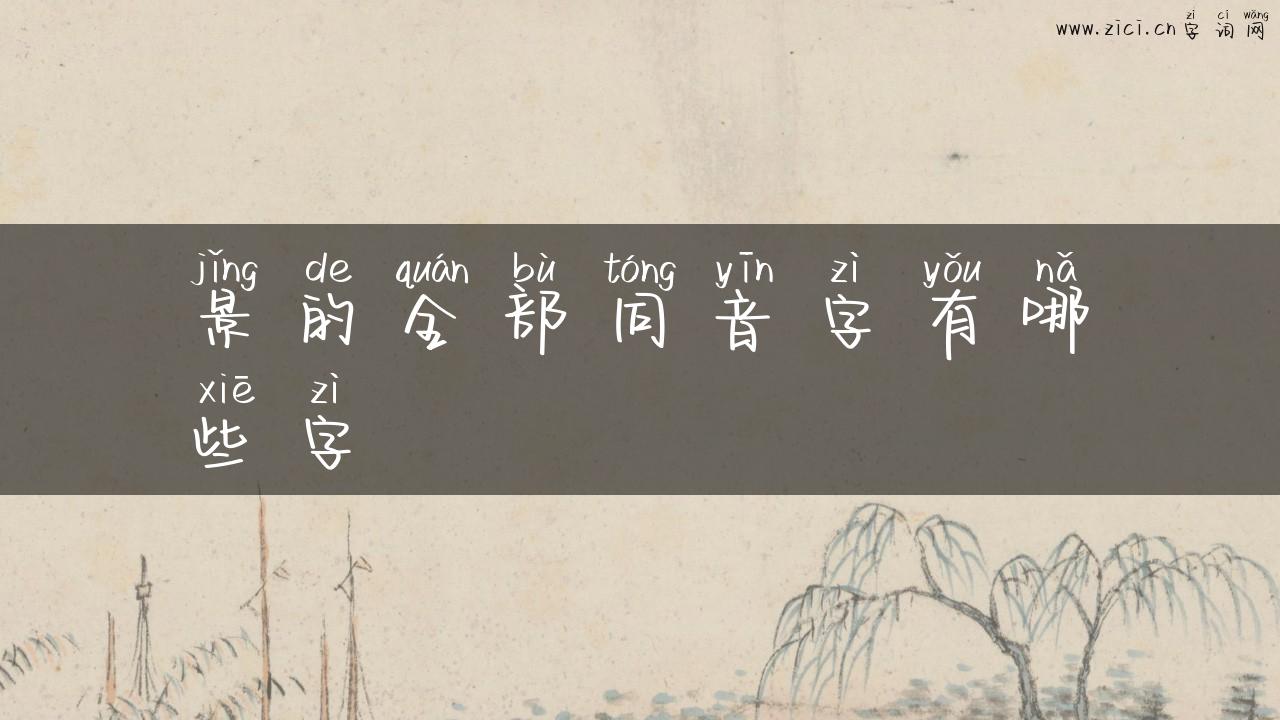 zì cí wǎng
www.zici.cn 字词网
jǐng de quán bù tóng yīn zì yǒu nǎ
景的全部同音字有哪
xiē zì
些字